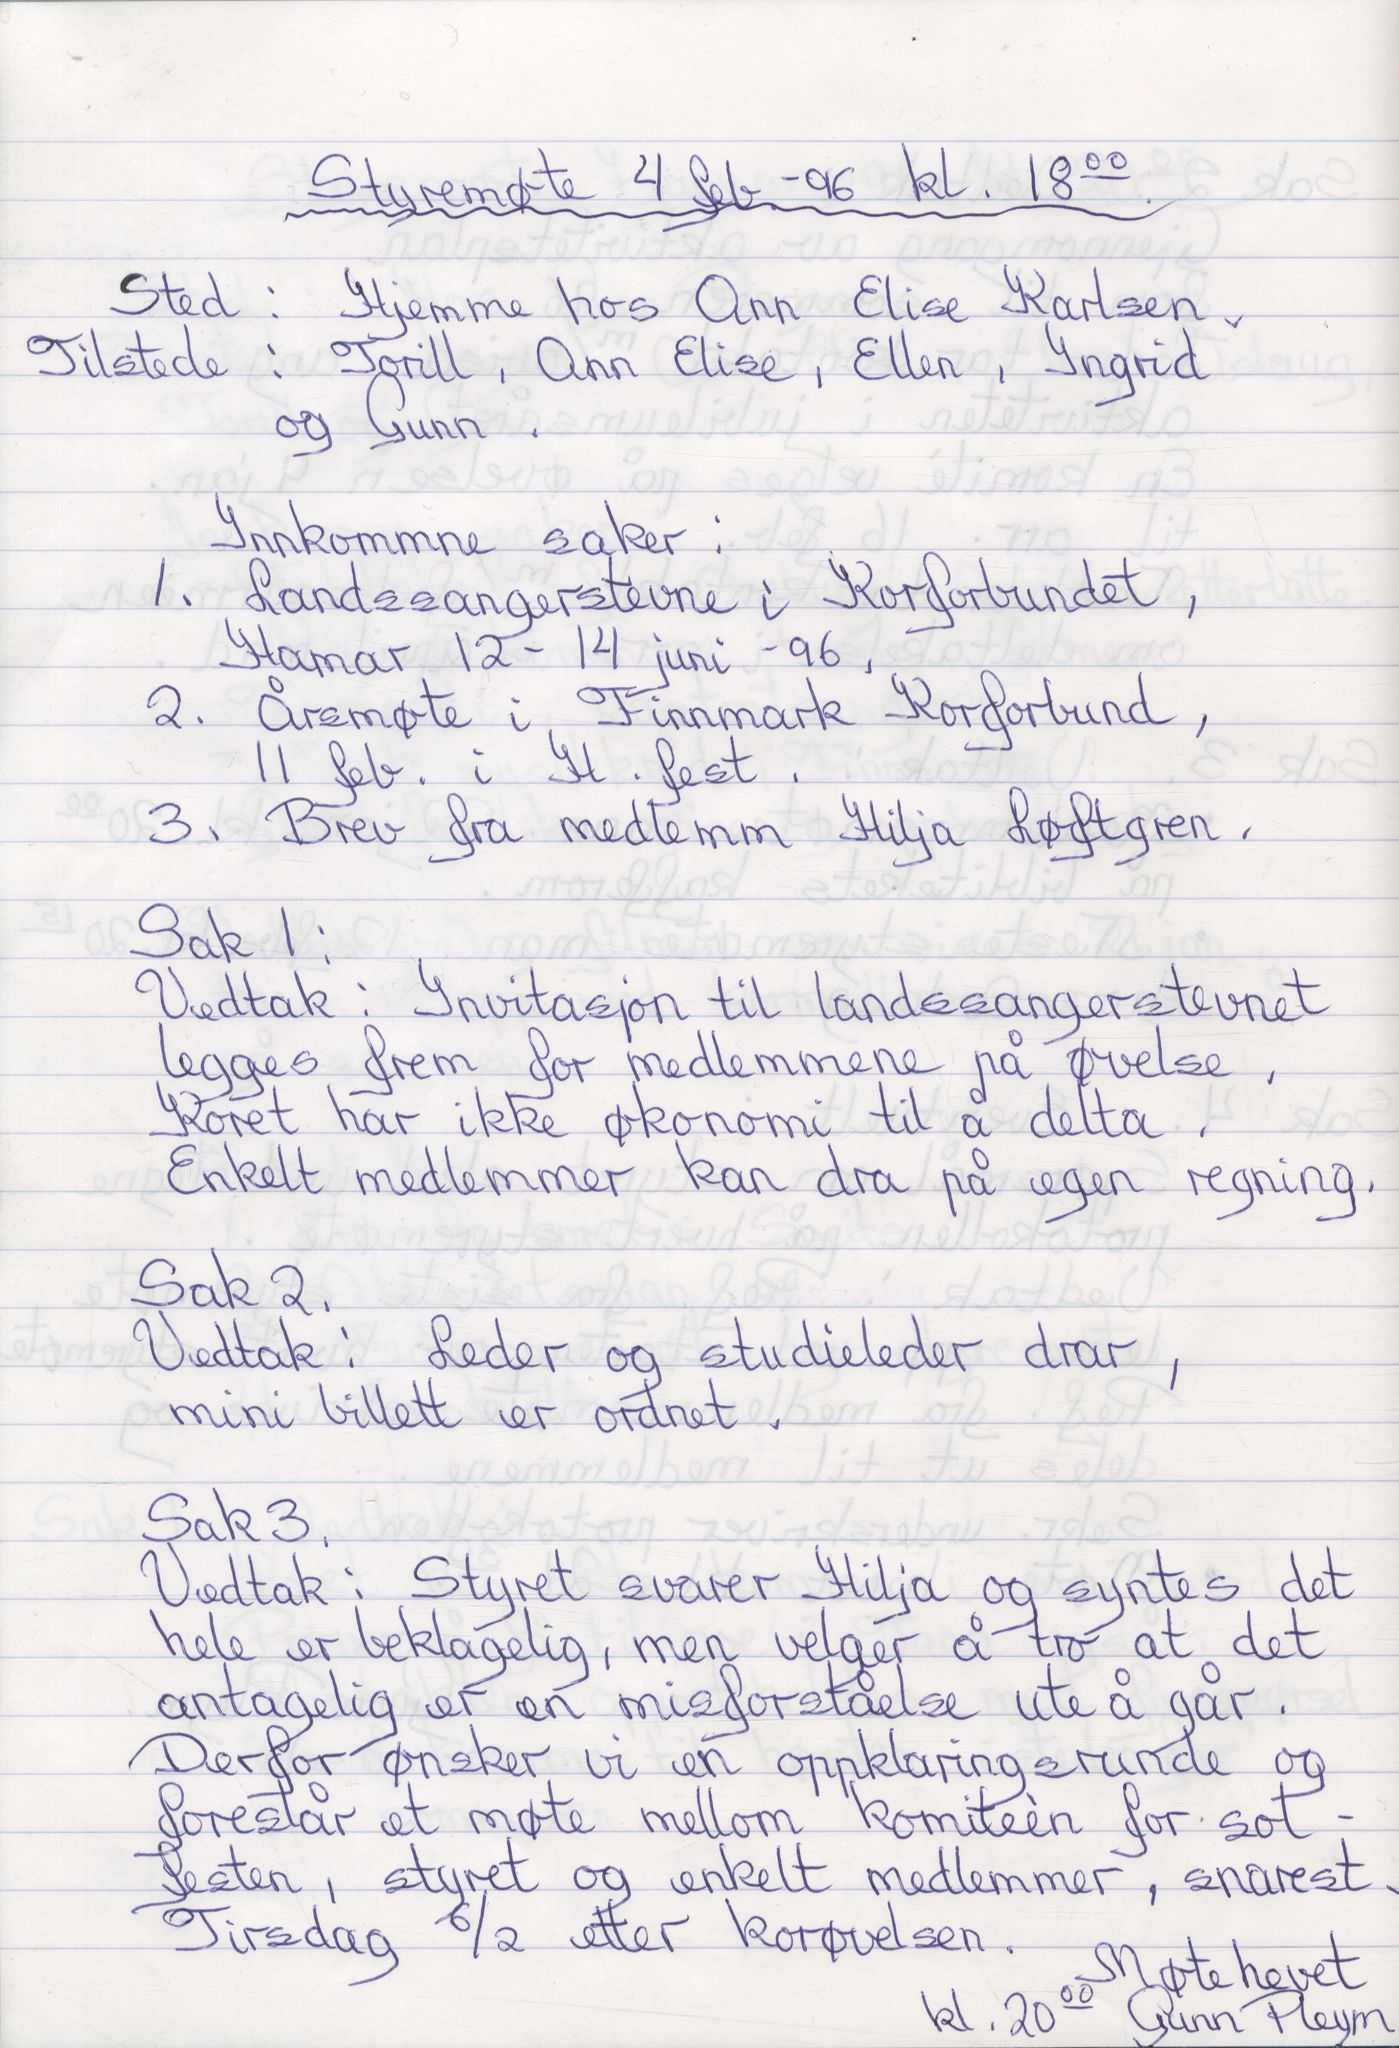 Styremøte 4 feb -96 kl. 18⁰⁰.
Sted : Hjemme hos Ann Elise Karlsen.
Tilstede : Torill, Ann Elise, Ellen, Ingrid
og Gunn.
Innkommne saker :
1. Landssangerstevne i Korforbundet,
Hamar 12 - 14 juni -96.
2. Årsmøte i Finnmark Korforbund,
11 feb. i H.fest.
3. Brev fra medlemm Hilja Løftgren.
Sak 1:
Vedtak : Invitasjon til landssangerstevnet
legges frem for medlemmene på øvelse.
Koret har ikke økonomi til å delta.
Enkelt medlemmer kan dra på egen regning.
Sak 2.
Vedtak : Leder og studieleder drar,
mini billett er ordnet.
Sak 3.
Vedtak : Styret svarer Hilja og syntes det
hele er beklagelig, men velger å tro at det
antagelig er en misforståelse ute å går.
Derfor ønsker vi en oppklaringsrunde og
forestår et møte mellom komiteèn for sol-
festen, styret og enkelt medlemmer, snarest.
Tirsdag 6/2 etter korøvelsen.
Møte hevet
kl. 20⁰⁰ Gunn Pleym